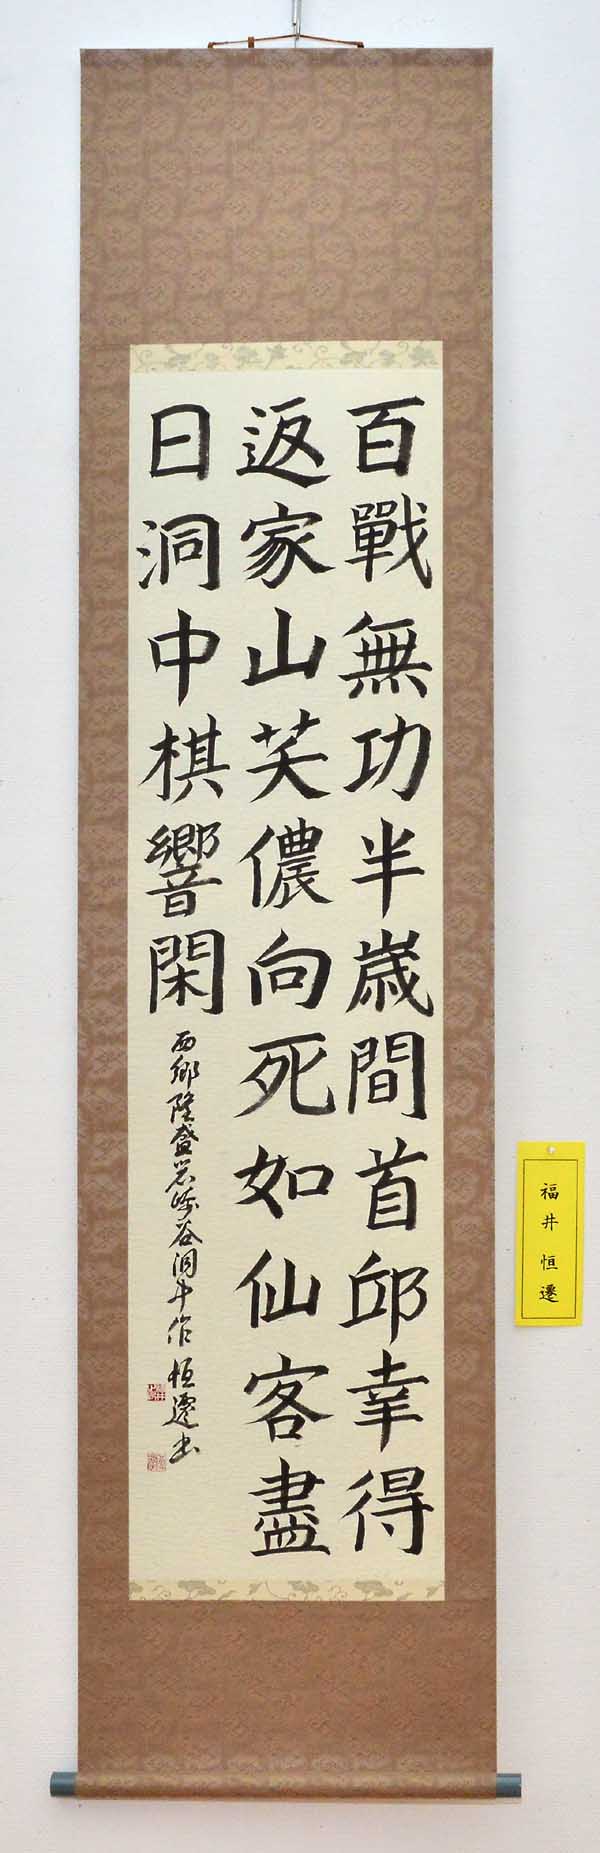 百戰無功半歳間首邱幸得
返家山芙儂向死如仙客盡
日洞中棋響閑
西郷隆盛岩崎谷洞中作 恒遷書
福井恒遷